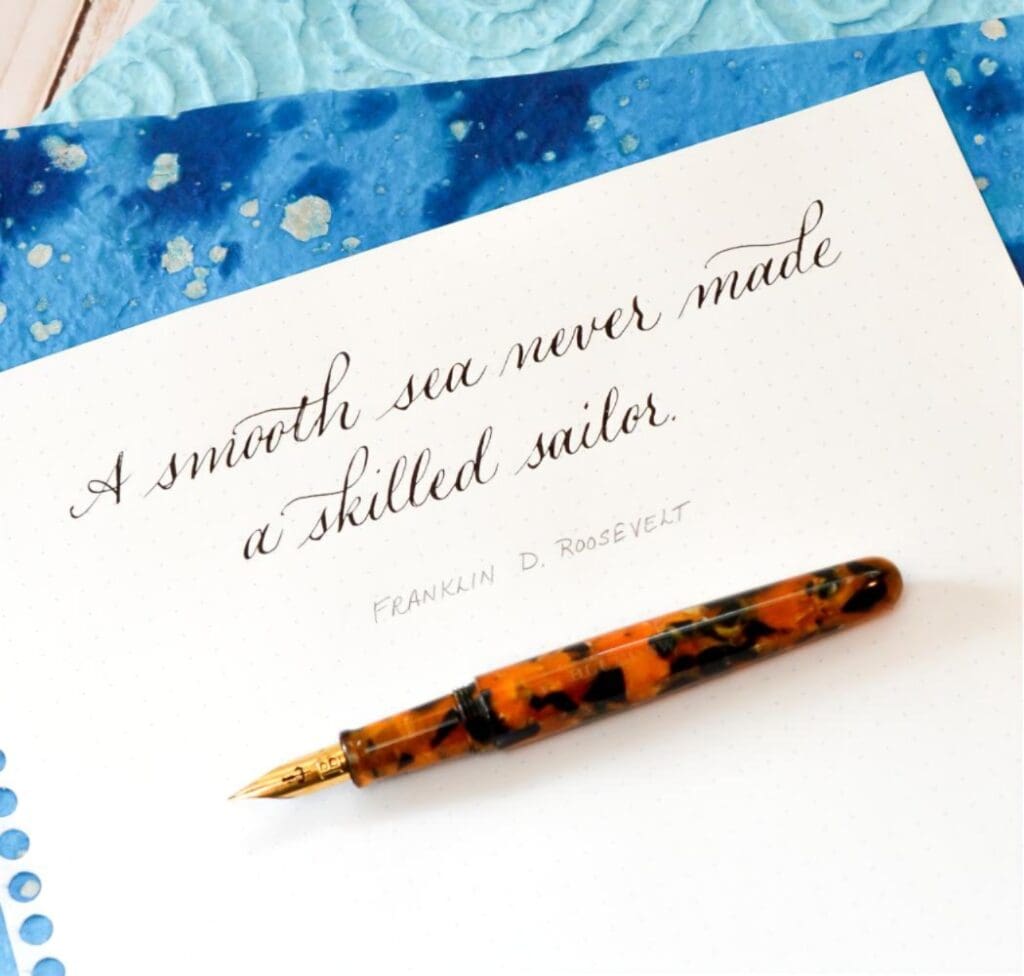 A smooth sea never made
a skilled sailor.
FRANKLIN D. ROOSEVELT